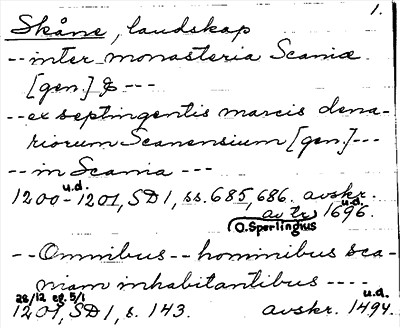 1.
Skåne, landskap
-- inter monasteria Scaniæ
[gen.] & ---
-- ex septingentis marcis dena-
riorum Scanensium [gen.] ---
-- in Scania ---
u.d.
1200-1201, SD 1, ss. 685, 686. avskr.
av tr. 1696. u.d.
O. Sperlingius
-- Omnibus -- hominibus sca-
niam inhabitantibus ----
28/12 eg. 5/1 u.d.
1207, SD 1, s. 143. avskr. 1494.